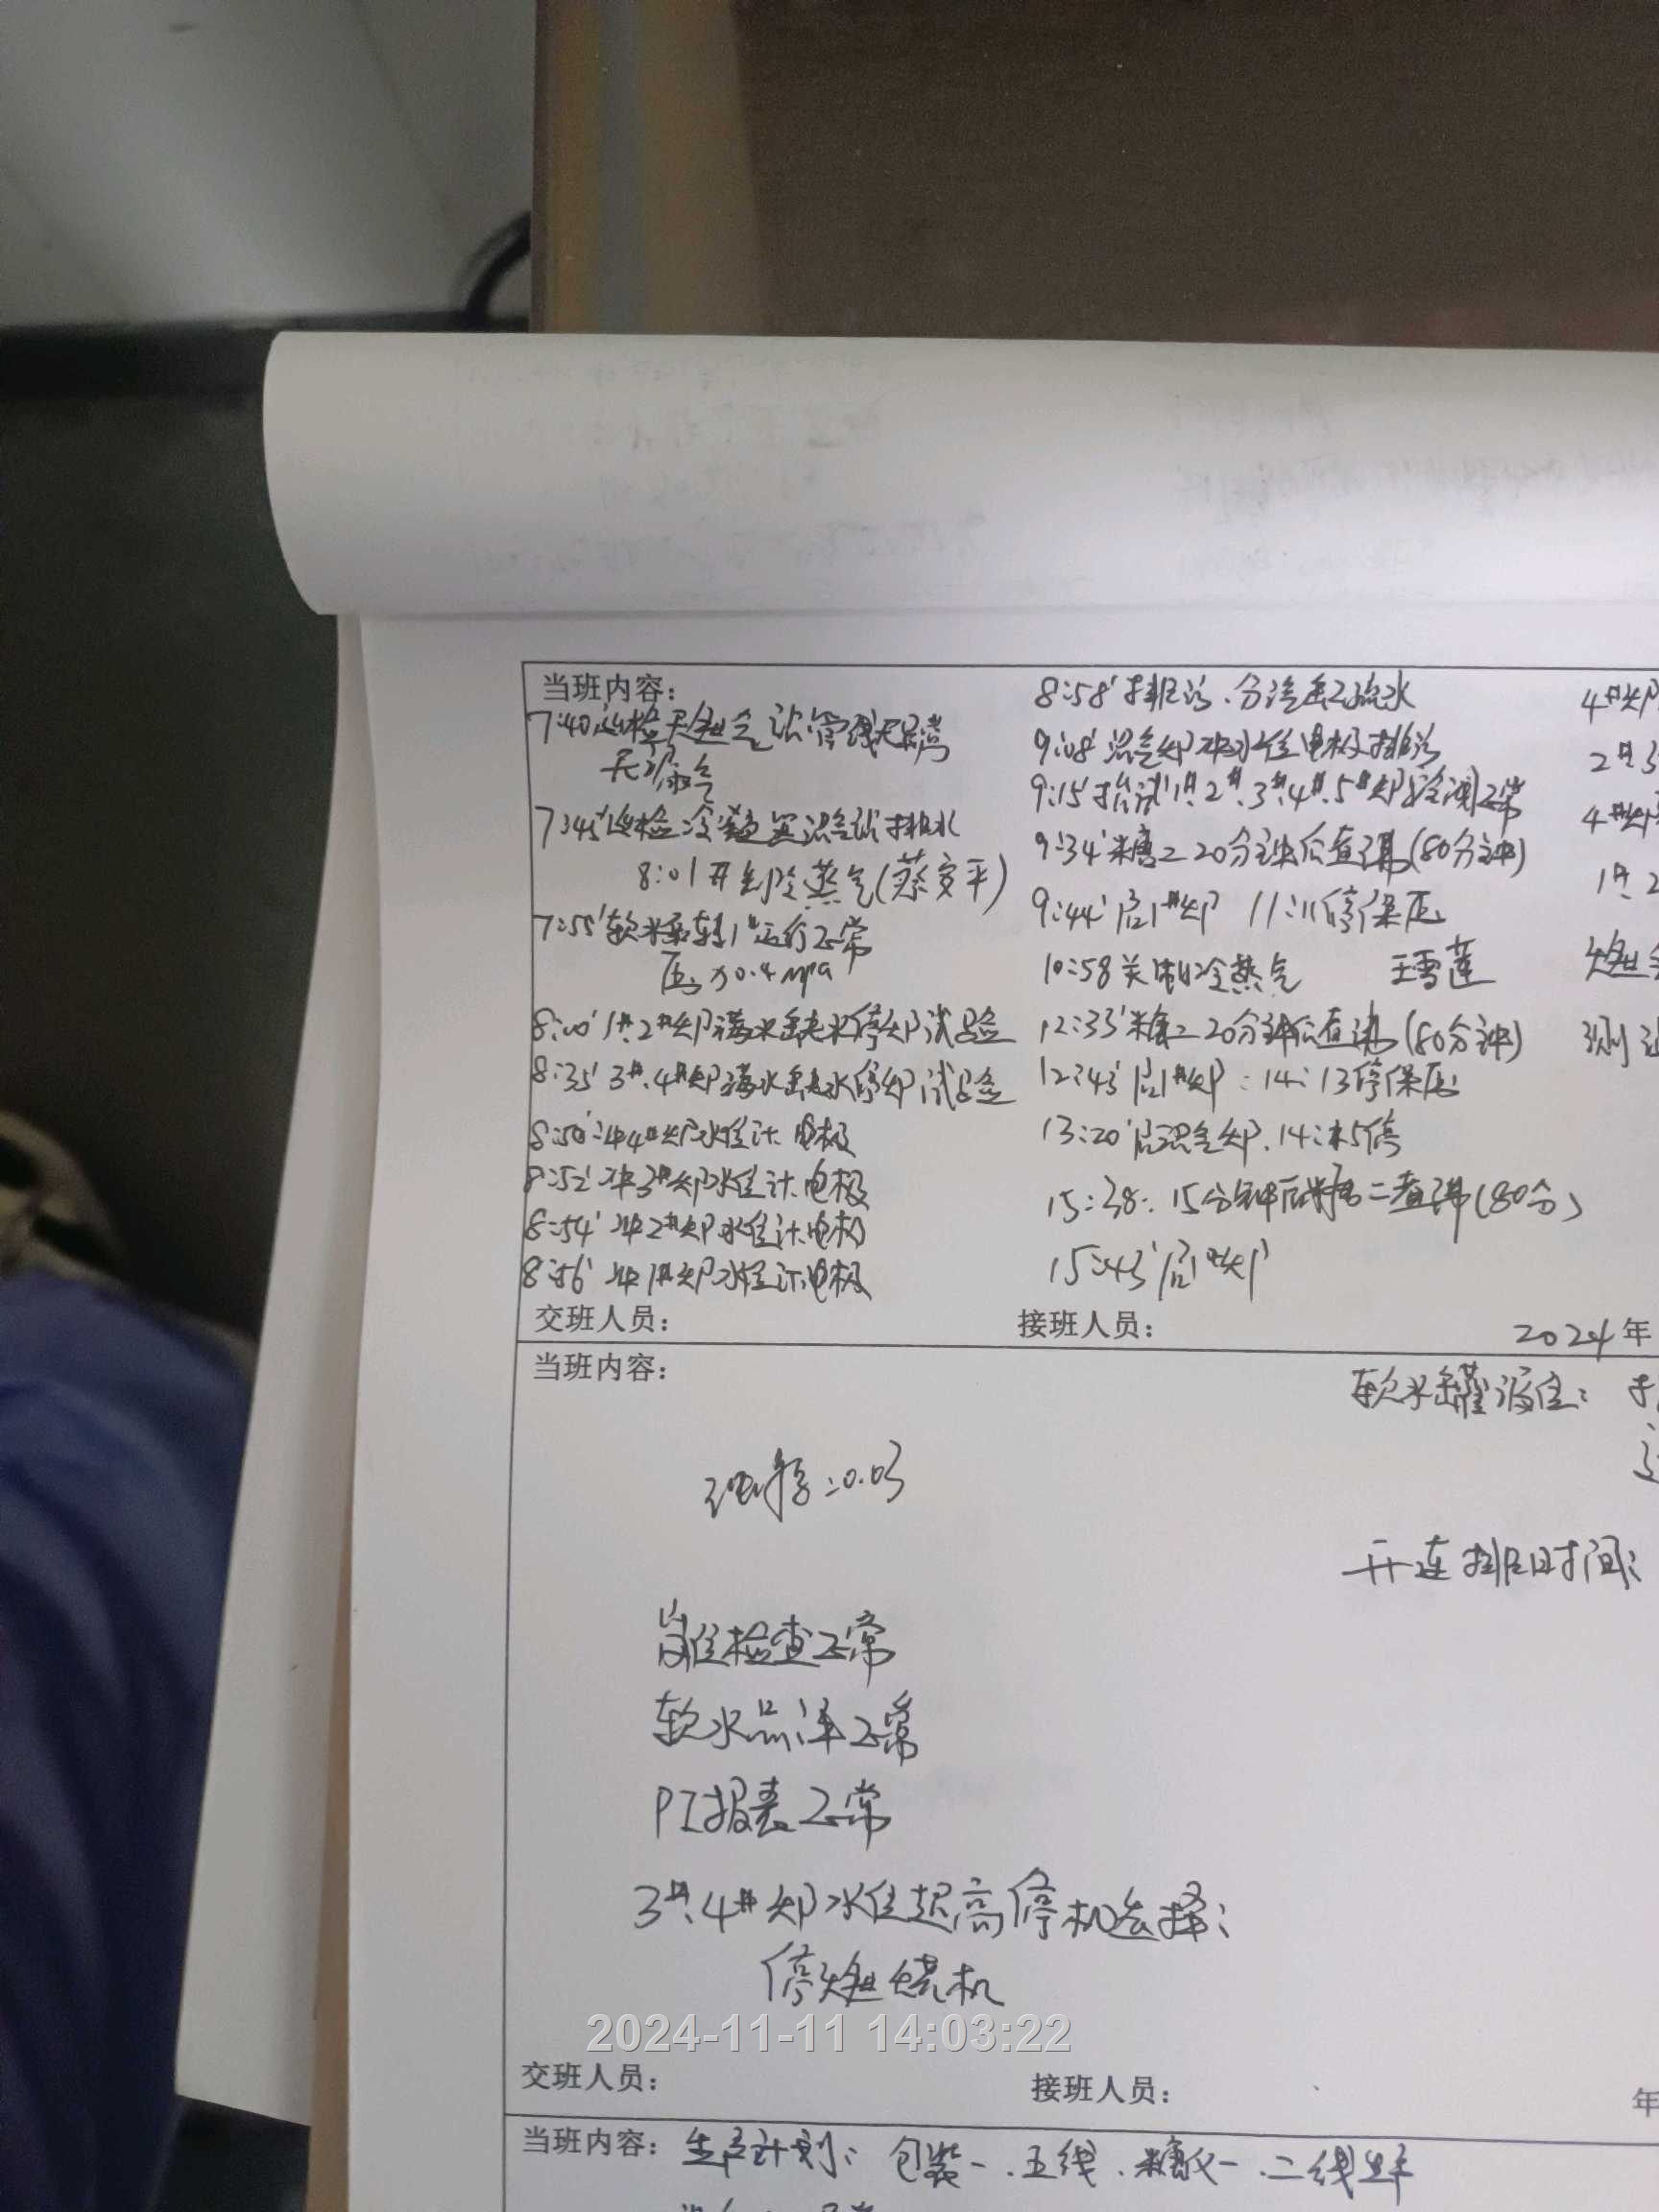 当班内容:
7:40巡检天燃气站管线无异常
无漏气
7:45'巡检冷凝 沼气 排水
8:01开制冷蒸气(蔡安平)
7:55'软水泵转1#运行正常
压力0.4mpa
8:00' 1#.2#炉满水缺水停炉试验
8:35' 3#.4#炉满水缺水停炉试验
8:50'冲4#炉水位计.电极
8:52'冲3#炉水位计.电极
8:54'冲2#炉水位计.电极
8:56'冲1#炉水位计.电极
8:58'排污.分汽缸疏水
9:08'沼气炉冲水位电极排污
9:15' 1#.2#.3#.4#.5#炉检测正常
9:34'糖二20分钟后煮沸(80分钟)
9:44'启1#炉 11:11停保压
10:58关制冷蒸气 王雪莲
12:33'糖二20分钟后煮沸(80分钟)
12:43'启1#炉:14:13停保压
13:20'启沼气炉.14:45停
15:38:15分钟后糖二煮沸(80分)
15:43'启1#炉
4#炉
2#3
4#炉
1#.2
燃气
测
交班人员:
接班人员:
2024年
当班内容:
软水罐液位:
:0.03
开连排时间:
岗位检查正常
软水品评正常
PI报表正常
3#.4#炉水位超高停机选择:
停燃烧机
2024-11-11 14:03:22
交班人员:
接班人员:
年
当班内容: 生产计划: 包装一.五线.糖化一.二线生产